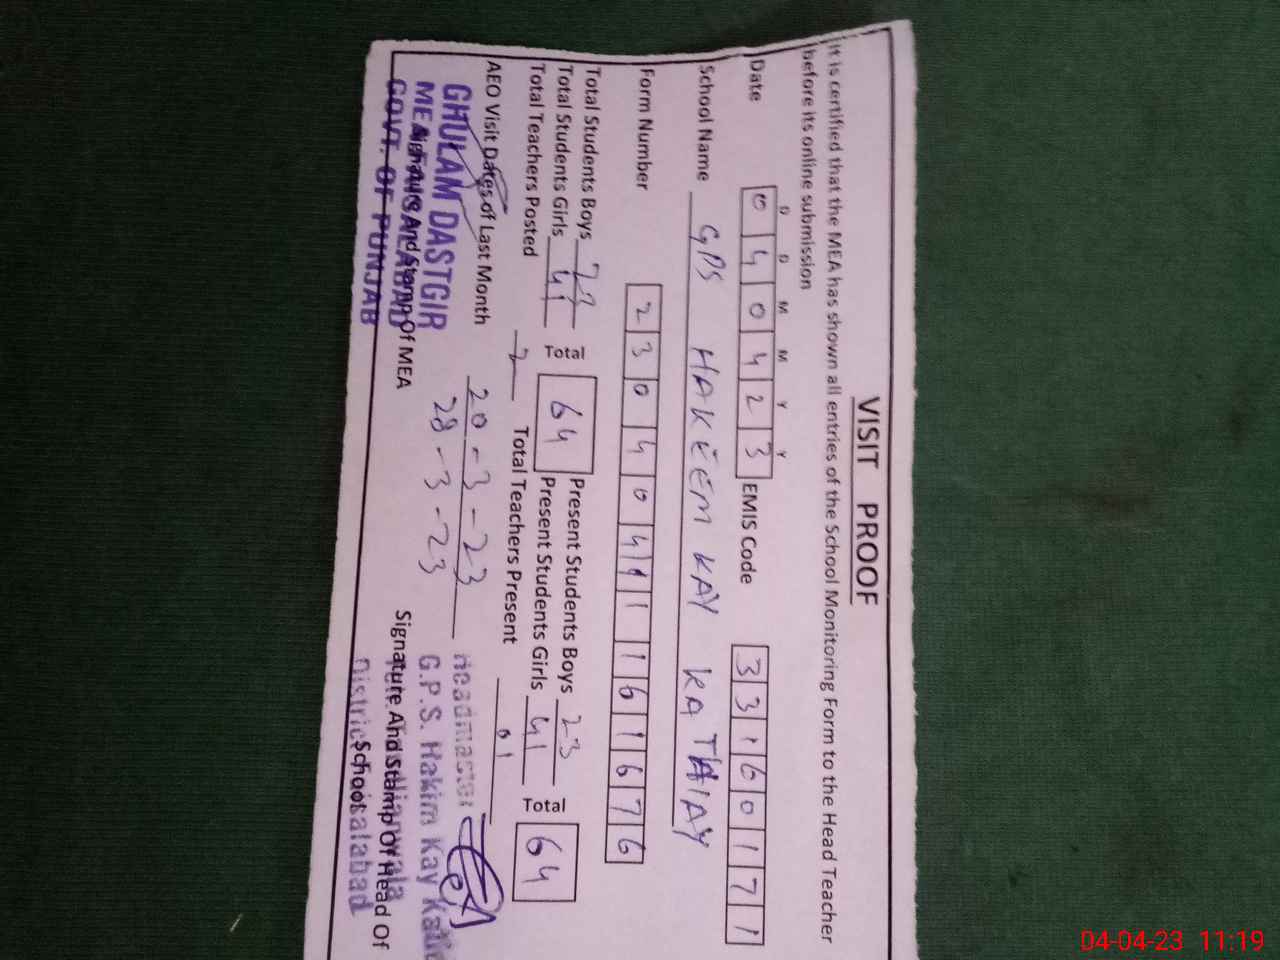 VISIT PROOF
It is certified that the MEA has shown all entries of the School Monitoring Form to the Head Teacher
before its online submission
D D M M Y Y
Date 0 4 0 4 2 3 EMIS Code 3 3 1 6 0 1 7 1
School Name GPS HAKEEM KAY KA THIAY
Form Number 2 3 0 4 0 4 1 1 1 6 1 6 7 6
Total Students Boys 23 Total 64 Present Students Boys 23 Total 64
Total Students Girls 41 Present Students Girls 41
Total Teachers Posted 2 Total Teachers Present 01
AEO Visit Dates of Last Month 20-3-23
28-3-23
GHULAM DASTGIR
MEA FAISALABAD
GOVT. OF PUNJAB
Signature And Stamp Of MEA
Headmaster
G.P.S. Hakim Kay
Signature And Stamp Of Head Of
School
District Faisalabad
04-04-23 11:19